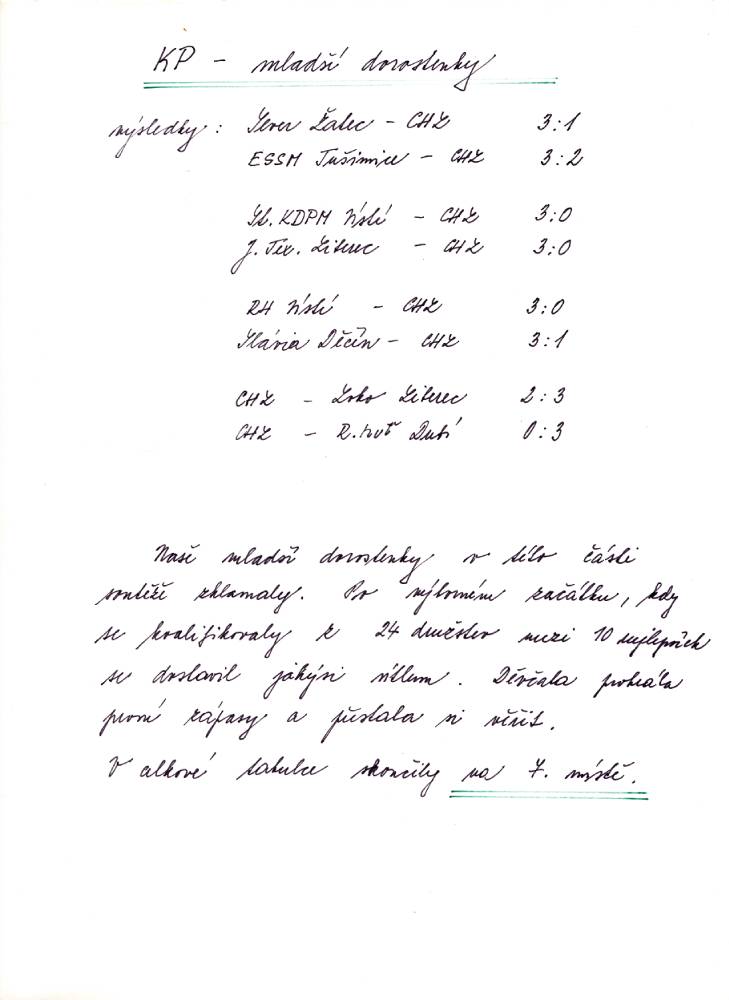 KP - mladší dorostenky
výsledky: Sever Žatec - CHZ 3:1
ESSM Tušimice - CHZ 3:2
Sl. KDPM Ústí - CHZ 3:0
J. Tex. Liberec - CHZ 3:0
RH Ústí - CHZ 3:0
Slávia Děčín - CHZ 3:1
CHZ - Loko Liberec 2:3
CHZ - R. huť Dubí 0:3
Naše mladší dorostenky v této části
soutěže zklamaly. Po výborném začátku, kdy
se kvalifikovaly z 24 družstev mezi 10 nejlepších
se dostavil jakýsi útlum. Děvčata prohrála
první zápasy a přestala si věřit.
V celkové tabulce skončily na 7. místě.